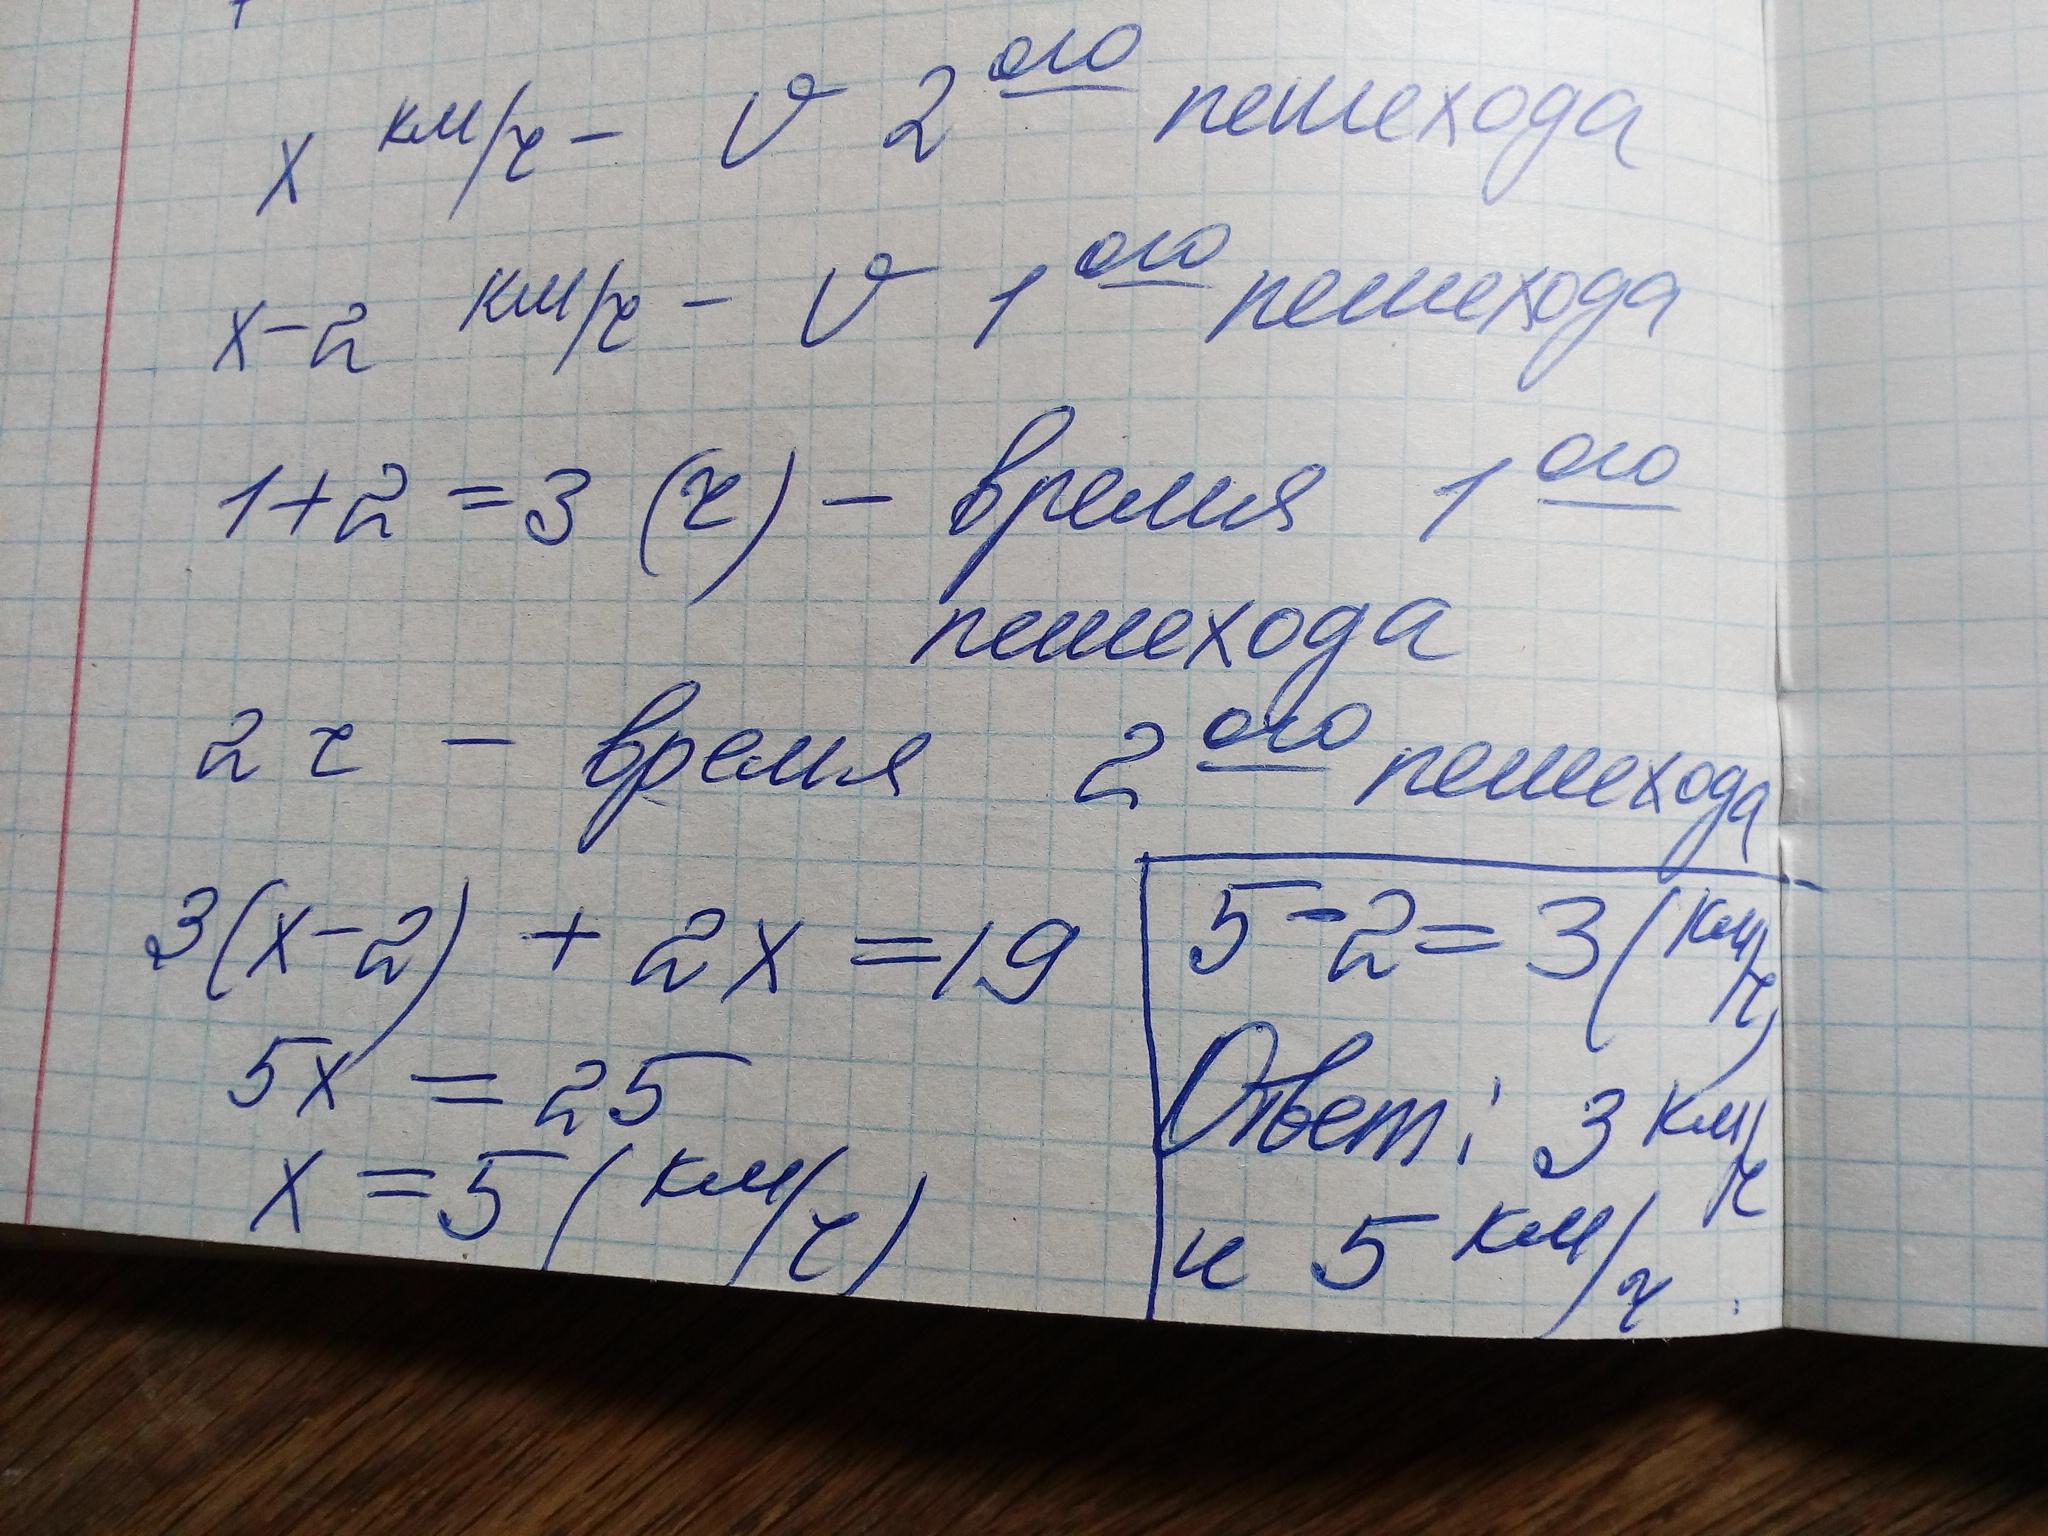 x км/ч – v 2 ого пешехода
x – 2 км/ч – v 1 ого пешехода
1 + 2 = 3 (ч) – время 1 ого
пешехода
2 ч – время 2 ого пешехода
3(x – 2) + 2x = 19
5x = 25
x = 5 (км/ч)
5 – 2 = 3 (км/ч)
Ответ: 3 км/ч
и 5 км/ч